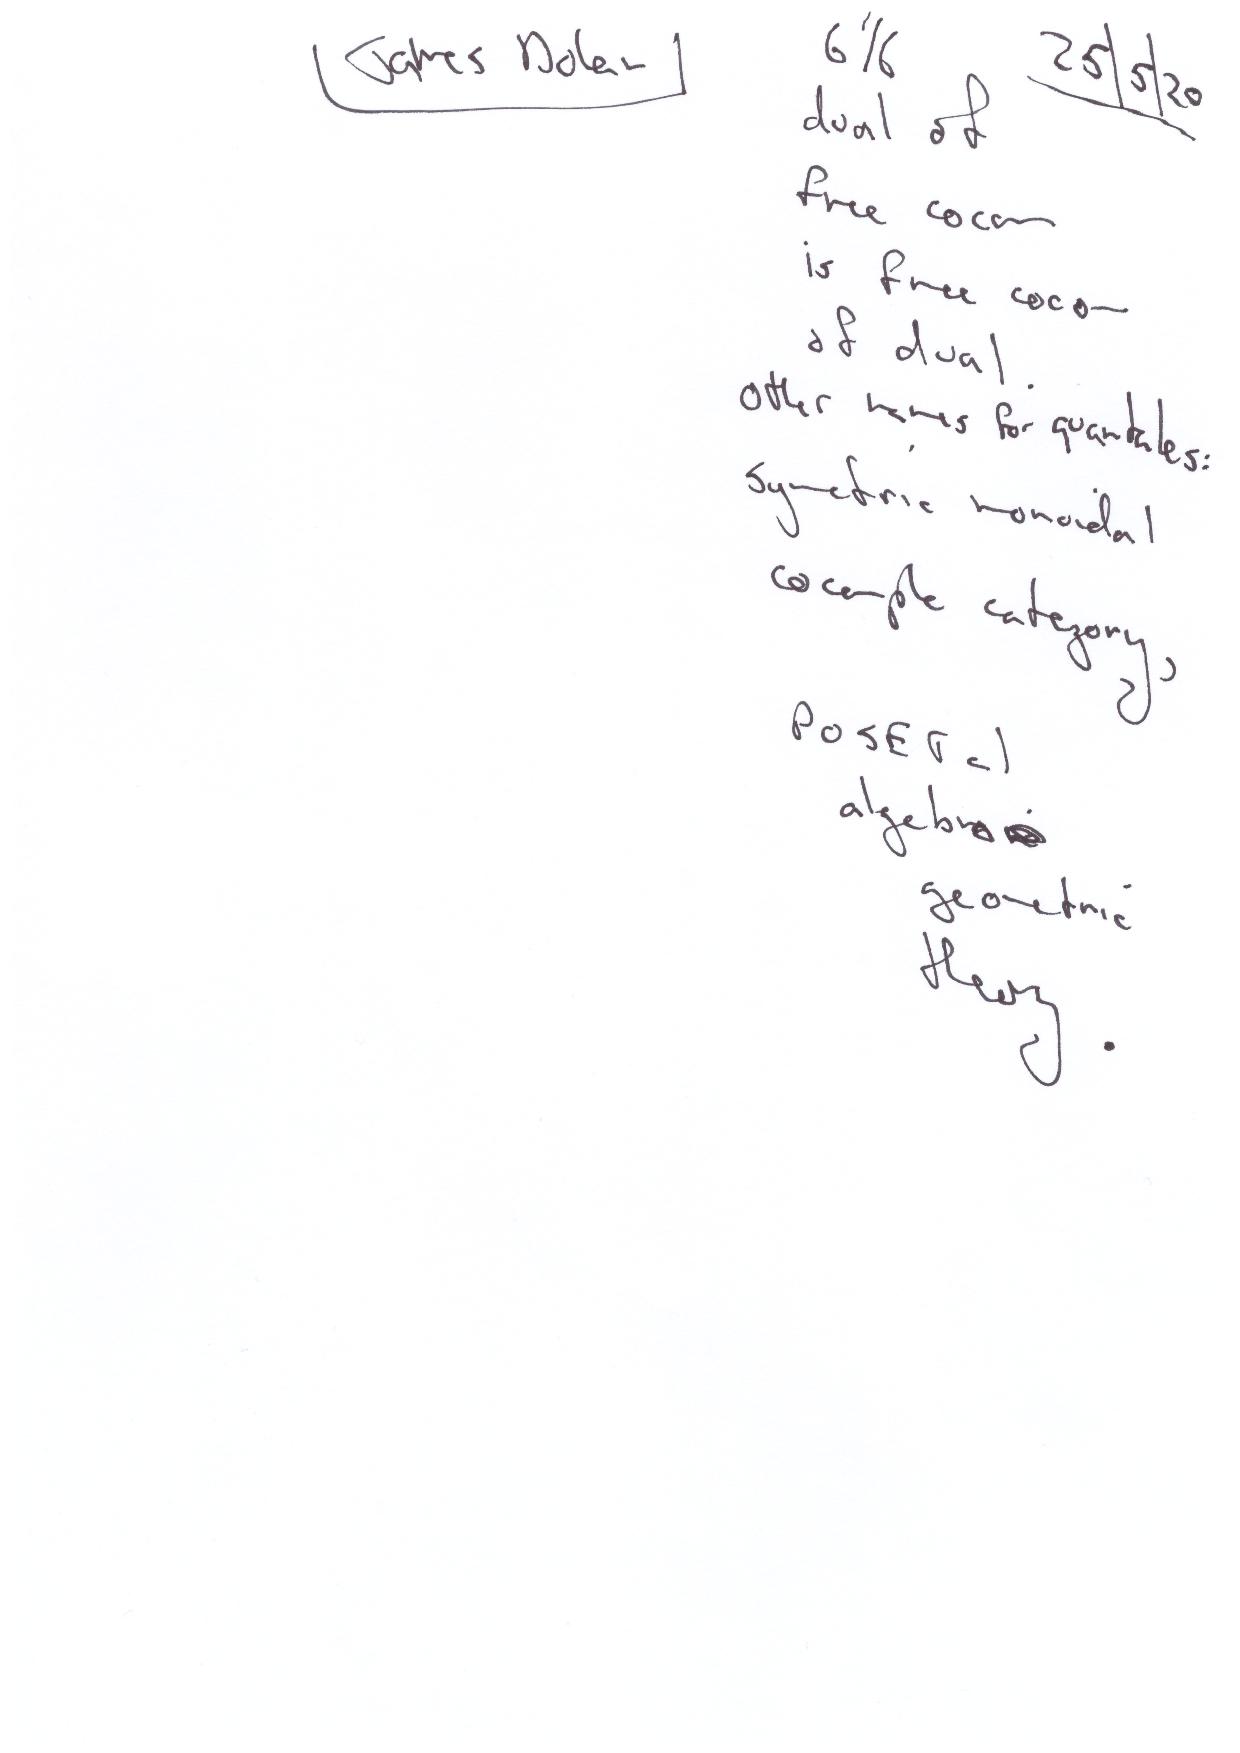 James Dolan 6/6 25/5/20
dual of
free cocom
is free cocom
of dual.
other names for quantales:
symetric monoidal
cocomple category,
POSETal
algebro
geometric
theory.